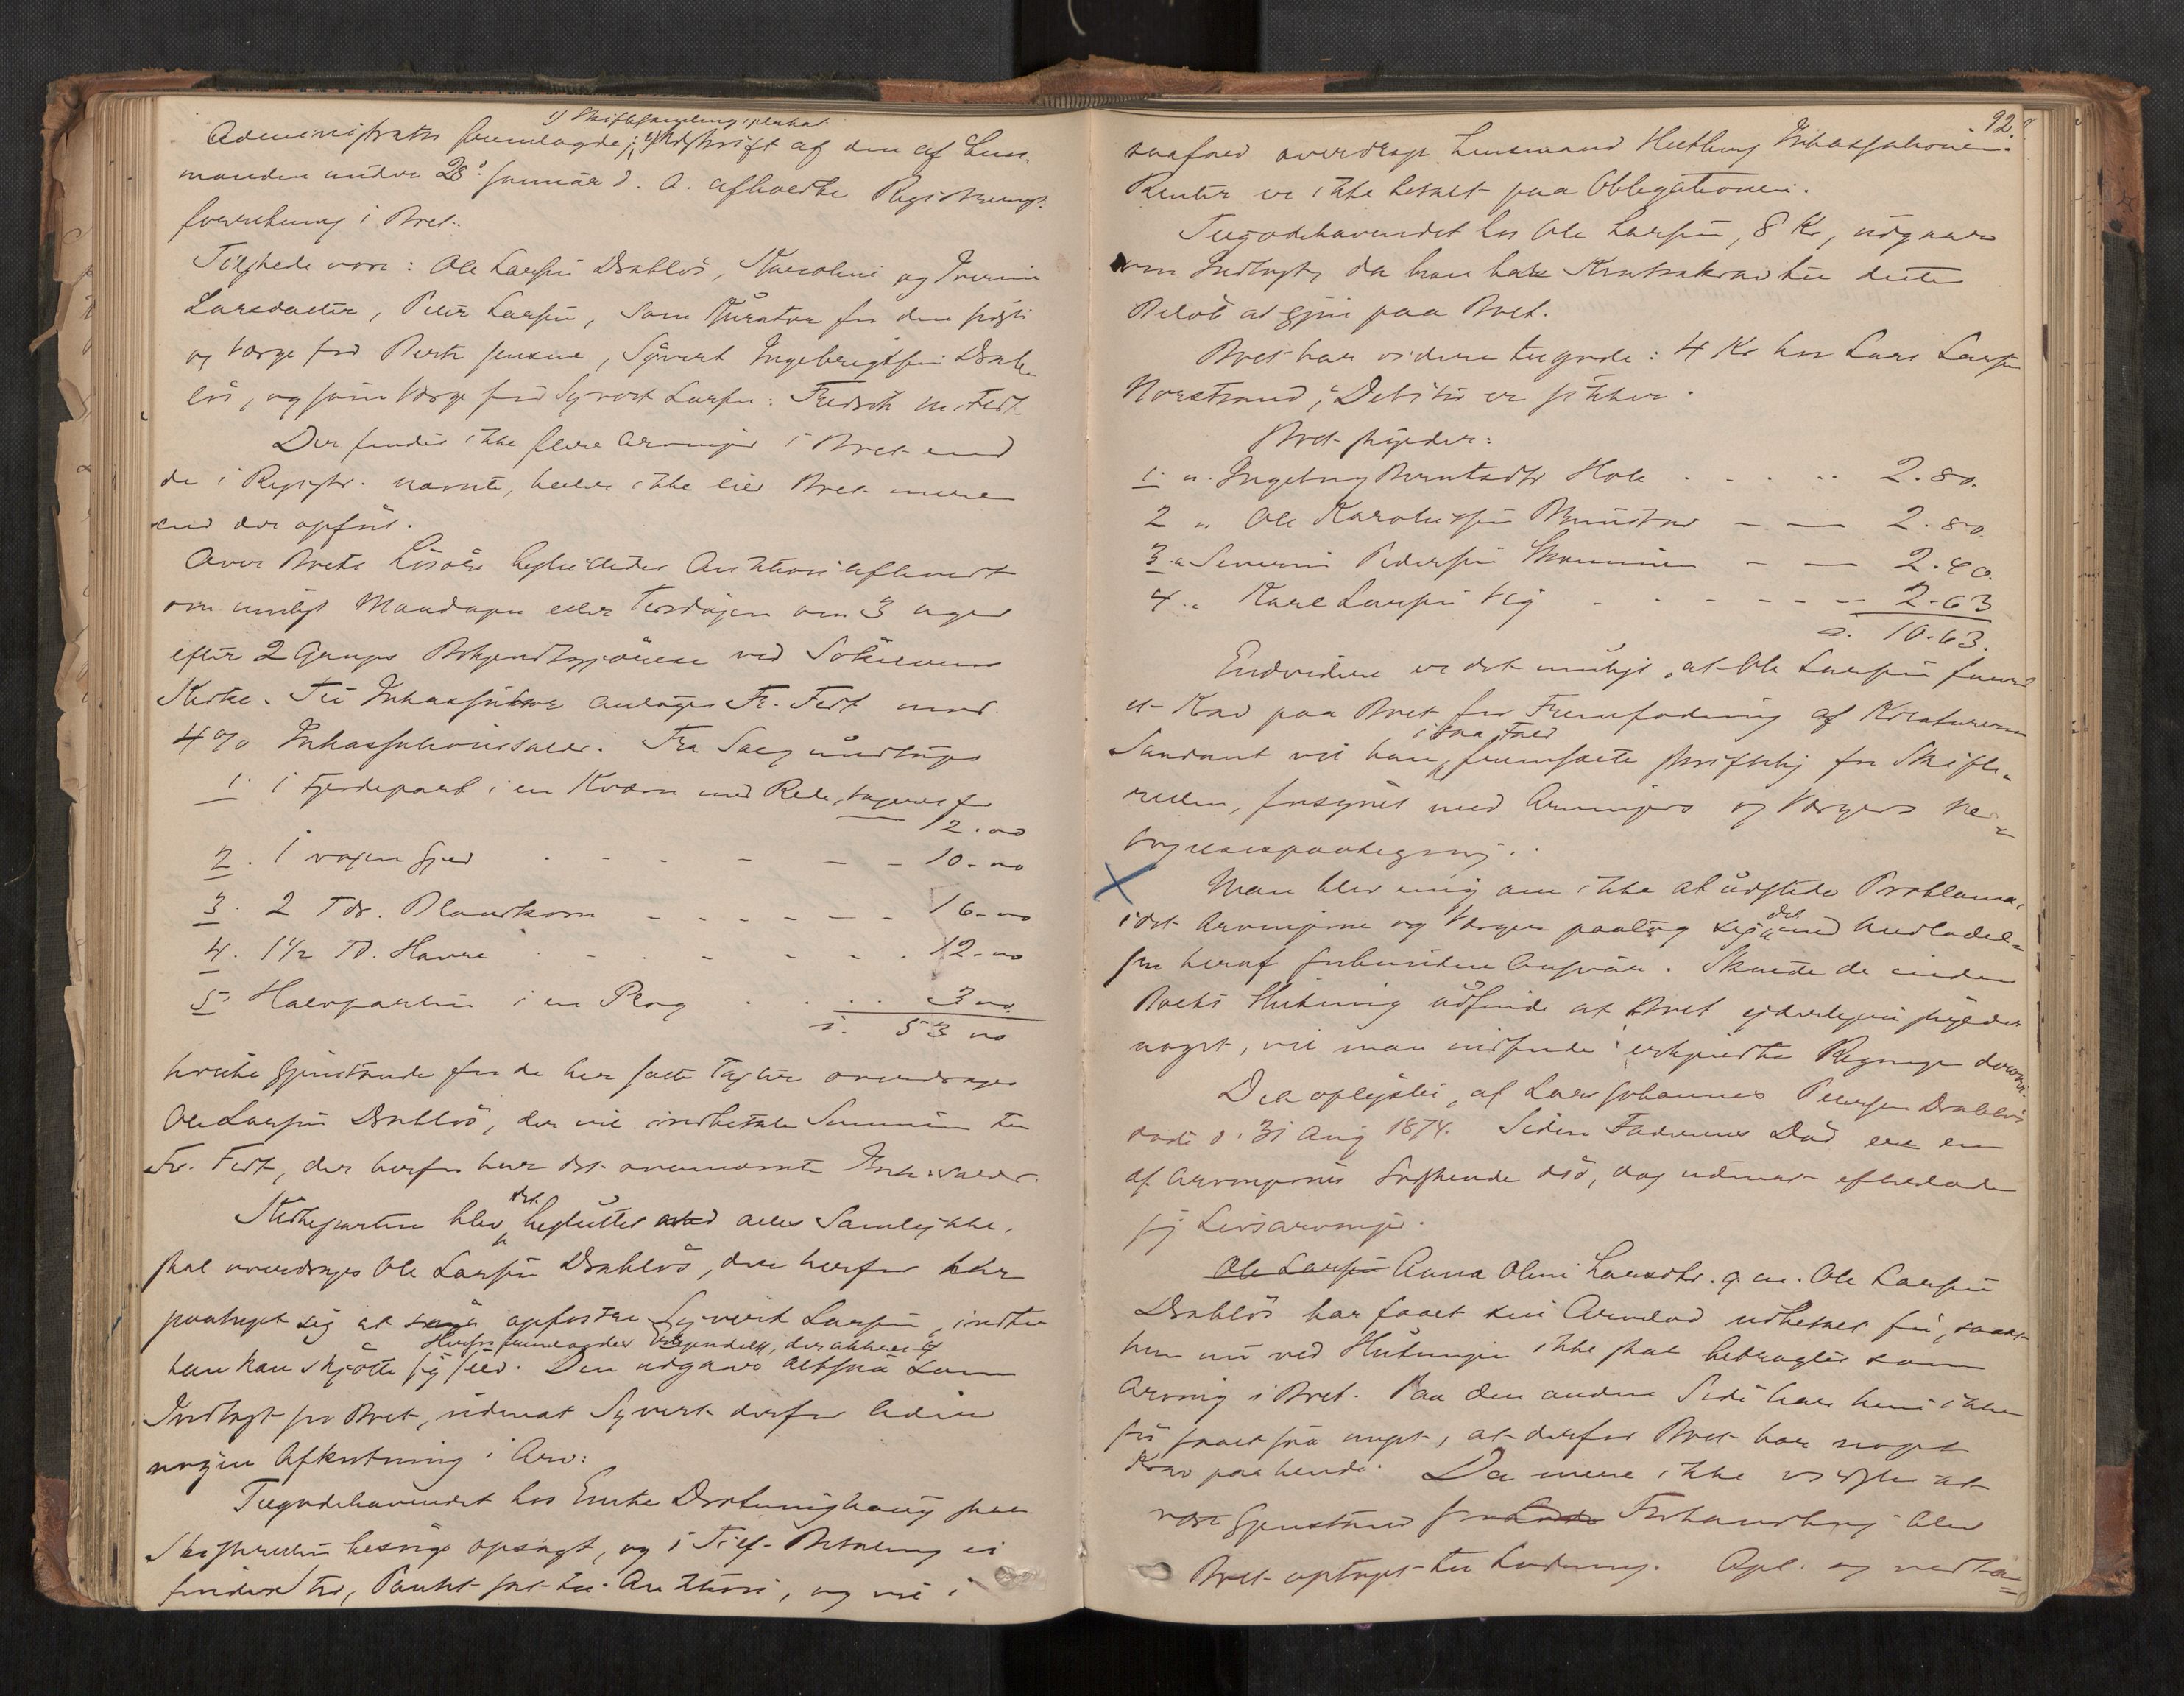 1) Skiftesamlingsplakat
Administrator fremlagde; 2) Udskrift af den af Lens-
manden under 28de Januar d. A. afholdte Registrerings-
forretning i Boet.
Tilstede vare: Ole Larsen Drabløs, Karoline og Iverine
Larsdøtter, Peter Larsen, som Kurator for den sidste
og Værge for Berte Jensine, Syvert Ingebrigtsen Drab-
løs, og som Værge for Syvert Larsen: Fredrik M. Fedt.
Der findes ikke flere Arvinger i Boet end
de i Registr. nævnte, heller ikke eier Boet mere
end der opført.
Over Boets Løsøre besluttedes Auktion afholdt
om muligt Mandagen eller Tirsdagen om 3 Uger
efter 2 Ganges Bekjendtgjørelse ved Søkelvens
Kirke. Til Inkassator antages Fr. Fedt mod
4 % Inkassationssalær. Fra Salg undtages
1. 1 Fjerdepart i en Kværn med Rede, takseret for
12.00
2. 1 voxen Gjed - - - - 10-00
3. 2 Tdr. Blandkorn - - - - - 16-00
4. 1 1/2 Td. Havre - - - - 12-00
5 Halvparten i en Plog . . . . 3 00
s. 53 00
hvilke Gjenstande for de her satte Taxter overdrages
Ole Larsen Drabløs, der vil indbetale Summen til
Fr. Fedt, der herfor har det ovennævnte Ink: salær.
Kirkeparten blev det besluttet med alles Samtykke,
skal overdrages Ole Larsen Drabløs, der herfor har
paataget sig at opfostre Syvert Larsen, indtil
han kan skjøtte sig selv. Den udgaar altsaa som
Indtægt for Boet, uden at Syvert derfor lider
nogen Afkortning i Arv:
Tilgodehavendet hos Enke Drotninghaug skal
Skifteretten besørge opsagt, og i Tilf. Betaling ei
finder Sted, Pantet sat til Auktion, og vil i
92.
saafald overdrage Lensmand Hultberg Inkassationen.
Renter er ikke betalt paa Obligationen.
Tilgodehavendet hos Ole Larsen, 8 Kr, udgaar
som Indtægt, da han har Kontrakrav til dette
Beløb at gjøre paa Boet.
Boet har videre tilgode: 4 Kr hos Lars Larsen
Norstrand; Debitor er sikker.
Boet skylder:
1 u. Ingeborg Berntsdtr Hole . . . . 2.80.
2 " Ole Karolussen - - 2.80.
3 " Severin Pedersen - - 2.40.
4 " Karl Larsen Vig - - - - - 2-63
s. 10.63.
Endvidere er det muligt, at Ole Larsen faar
et Krav paa Boet for Fremfodring af Kreaturerne
i saa Fald
Saadant vil han fremsætte skriftlig for Skifte-
retten, forsynet med Arvingers og Værgers Ved-
tagelsespaategning.
X Man blev enig om ikke at udstede Proklama,
idet Arvingerne og Værger paatog sig det med Undladel-
sen heraf forbundne Ansvar. Skulde de inden
Boets Slutning udfinde at Boet yderligere skylder
noget, vil man indsende erkjendte Regninger derover.
Det oplystes, at Lars Johannes Petersen Drabløs
døde d. 31 Aug 1874. Siden Faderens Død er en
af Arvingernes Søskende død, dog uden at efterlade
sig Livsarvinger.
Ole Larsen Anna Oline Larsdtr. g. m. Ole Larsen
Drabløs har faaet sin Arvelod udbetalt før, saa at
hun nu ved Slutningen ikke skal betragtes som
Arving i Boet. Paa den anden Side har hun ikke
før faaet saa meget, at derfor Boet har noget
Krav paa hende. Da mere ikke vidstes at
være Gjenstand for Forhandling blev
Boet optaget til Lodning. Opl. og vedta-